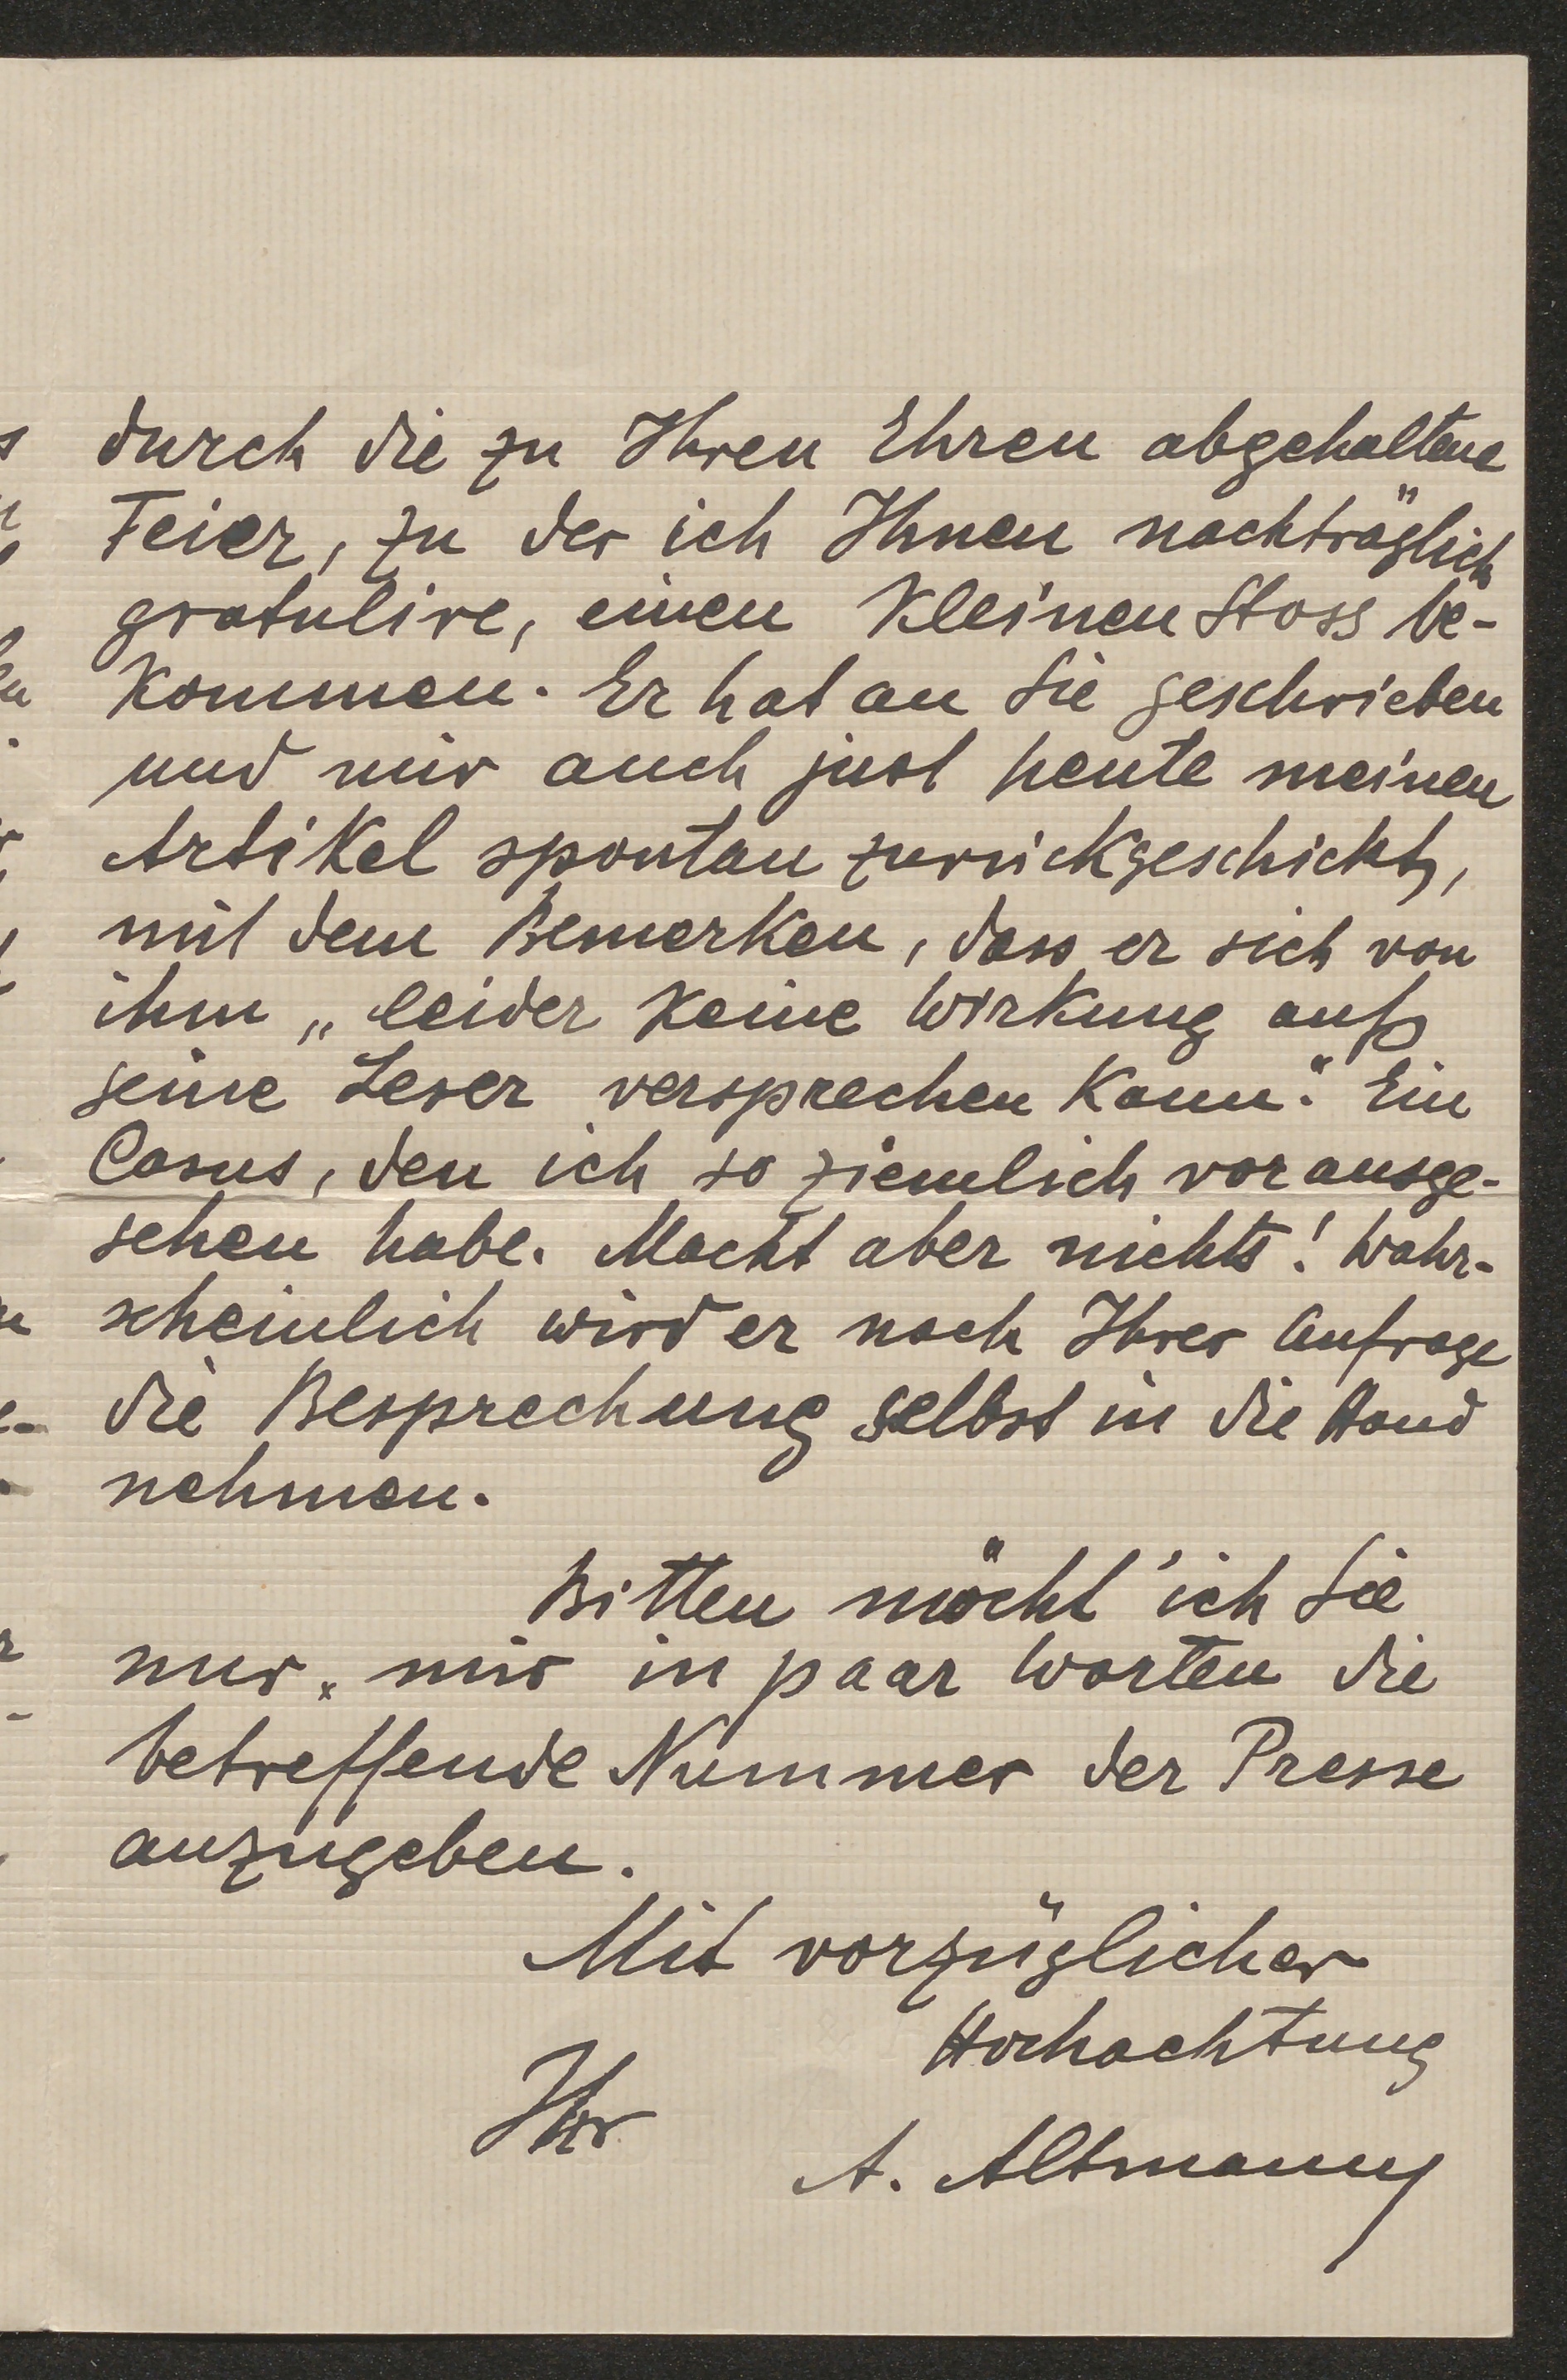 durch die zu Ihren Ehren abgehaltene
Feier, zu der ich Ihnen nachträglich
gratulire, einen kleinen Stoss be-
kommen. Er hat an Sie geschrieben
und mir auch just heute meinen
Artikel spontan zurückgeschickt,
mit dem Bemerken, dass er sich von
ihm „leider keine Wirkung auf
seine Leser versprechen kann." Ein
Casus, den ich so ziemlich vorausge-
sehen habe. Macht aber nichts! Wahr-
scheinlich wird er nach Ihrer Anfrage
die Besprechung selbst in die Hand
nehmen.
Bitten möcht' ich Sie
nur, mir in paar Worten die
betreffende Nummer der Presse
anzugeben.
Mit vorzüglicher
Hochachtung
Ihr
A. Altmann